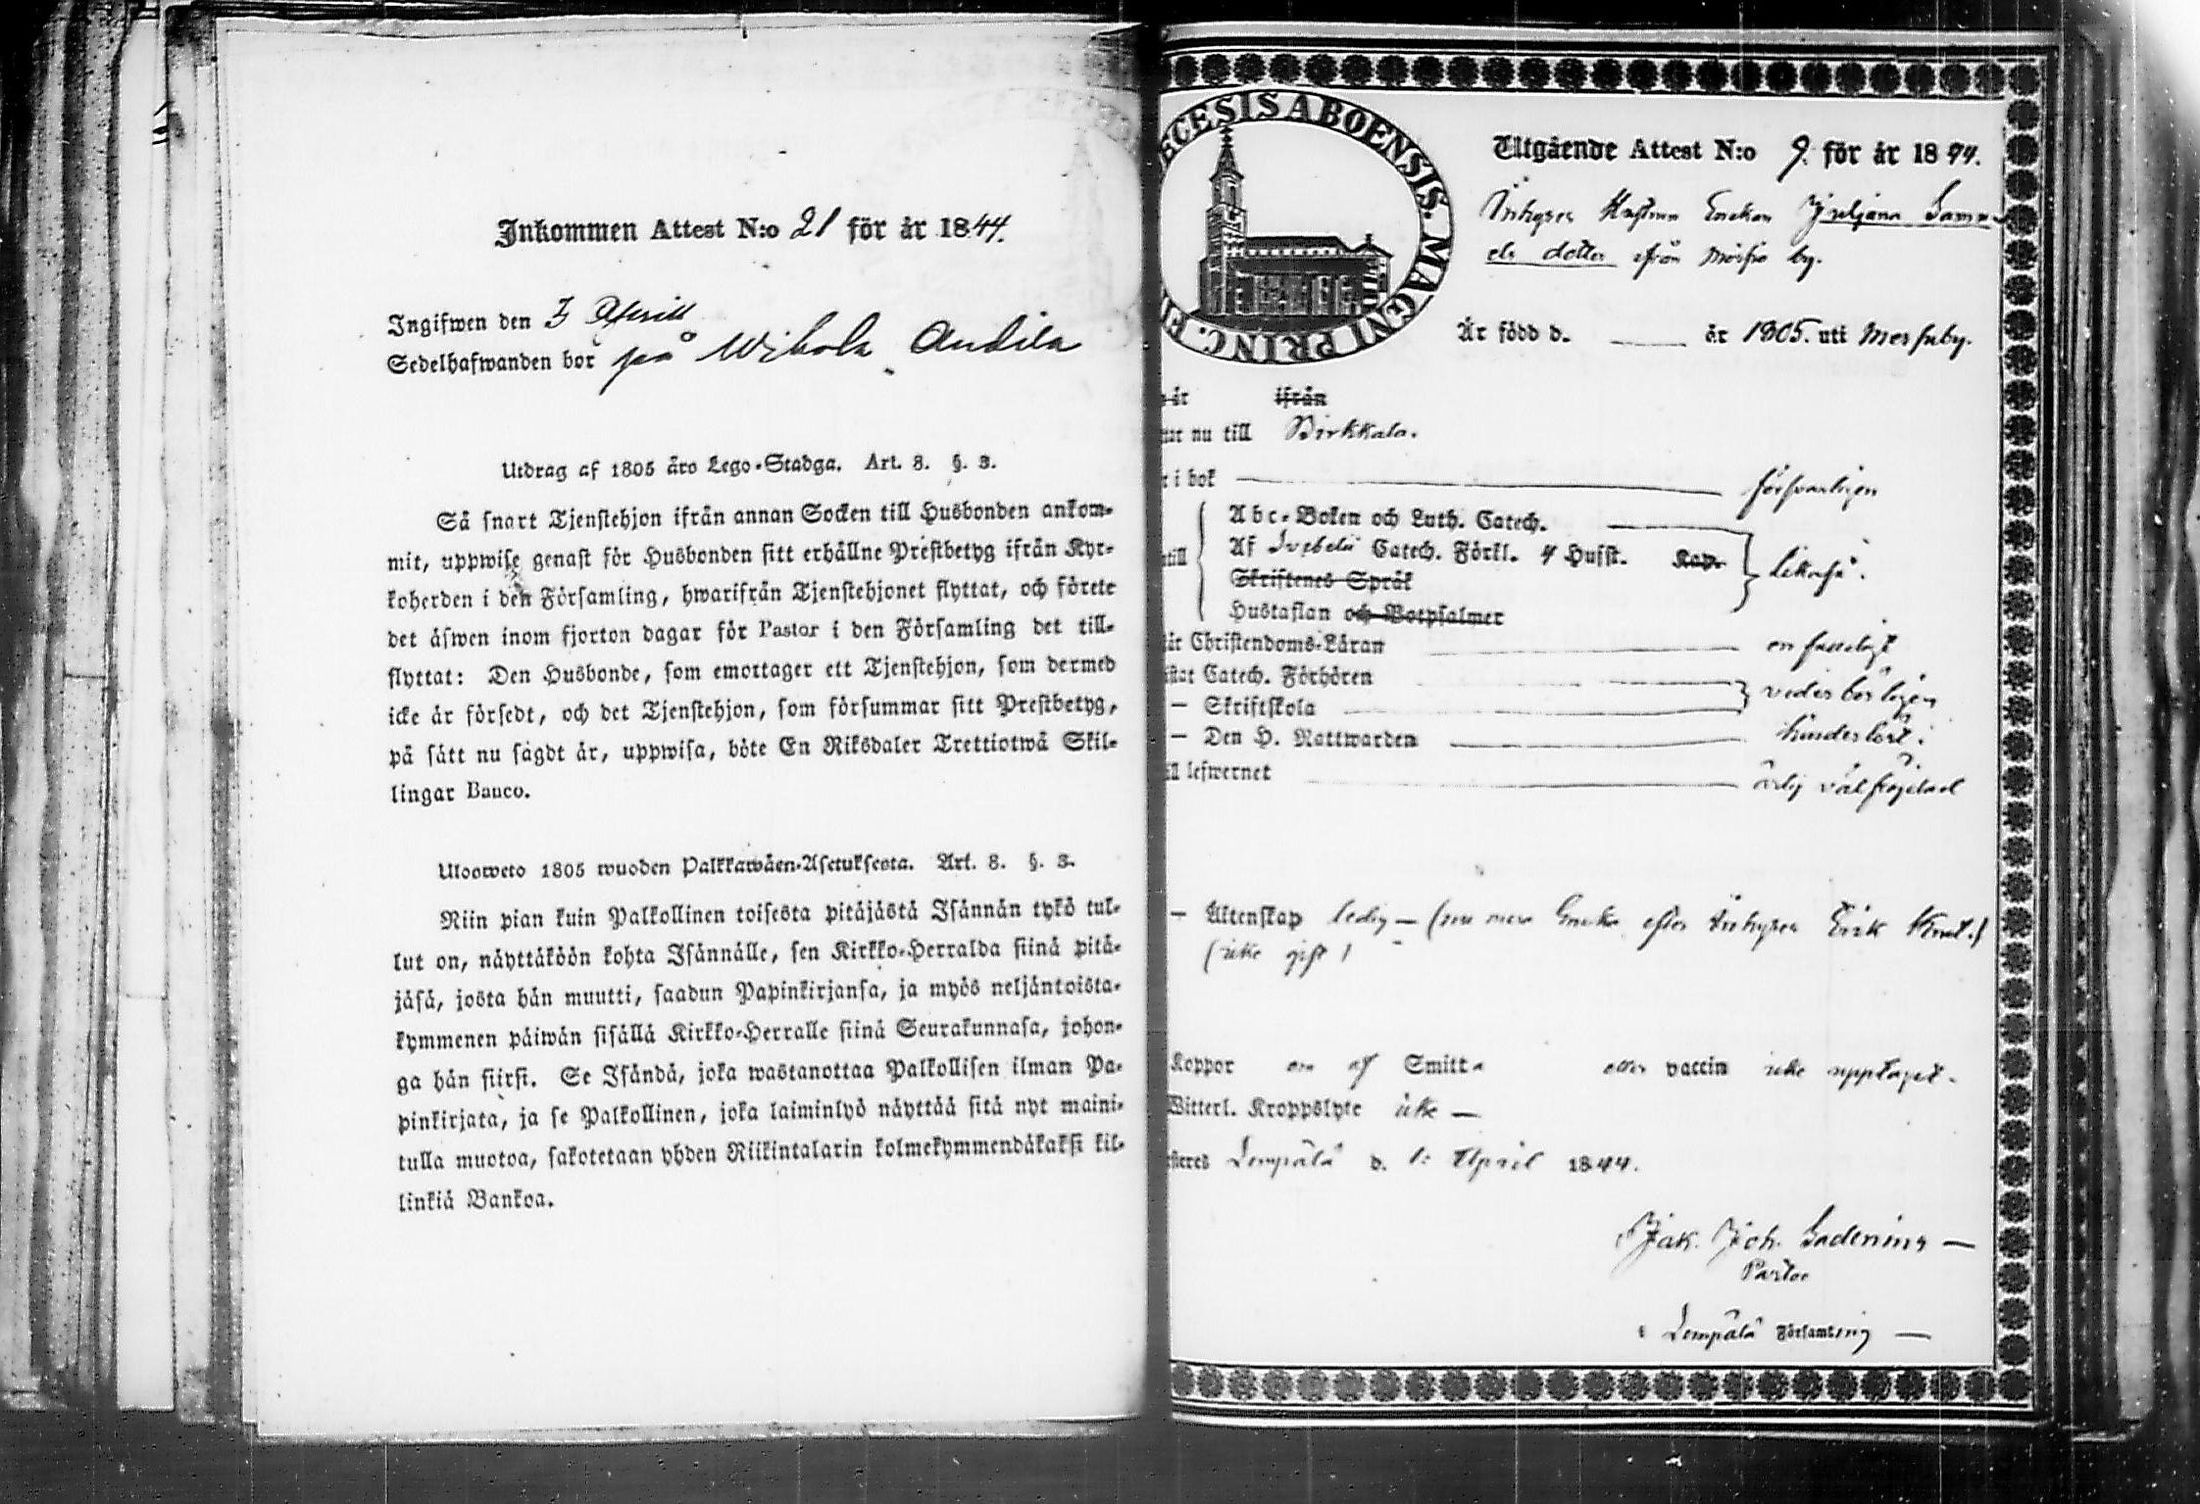 Inkommen Attest N:o 21 för år 1844.
Ingifwen den 3 April
Sedelhafwanden bor på Wihola Andila
Utdrag af 1805 års Lego-Stadga. Art. 8. §. 3.
Så snart Tjenstehjon ifrån annan Socken till Husbonden ankom-
mit, uppwise genast för Husbonden sitt erhållne Prestbetyg ifrån Kyr-
koherden i den Församling, hwarifrån Tjenstehjonet flyttat, och förete
det äfwen inom fjorton dagar för Pastor i den Församling det till-
flyttat: Den Husbonde, som emottager ett Tjenstehjon, som dermed
icke är försedt, och det Tjenstehjon, som försummar sitt Prestbetyg,
på sätt nu sagdt är, uppwisa, böte En Riksdaler Trettiotwå Skil-
lingar Banco.
Ulosweto 1805 wuoden Palkkawäen-Asetuksesta. Art. 8. §. 3.
Niin pian kuin Palkollinen toisesta pitäjästä Isännän tykö tul-
lut on, näyttäköön kohta Isännälle, sen Kirkko-Herralda siinä pitä-
jäsä, josta hän muutti, saadun Papinkirjansa, ja myös neljäntoista-
kymmenen päiwän sisällä Kirkko-Herralle siinä Seurakunnasa, johon-
ga hän siirsi. Se Isändä, joka wastanottaa Palkollisen ilman Pa-
pinkirjata, ja se Palkollinen, joka laiminlyö näyttää sitä nyt maini-
tulla muotoa, sakotetaan yhden Riikintalarin kolmekymmendäkaksi kil-
linkiä Bankoa.
ECESIS ABOENSIS. MAGNI PRINC. FI
Utgående Attest N:o 9. för år 1844.
Inhyses Hustrun Enekan Juljana Samu-
els dotter ifrån Moisio by.
Är född d. ___ år 1805. uti Moisio by.
år ifrån
nu till Birkkala.
i bok försvarligen
Abc-Boken och Luth. Catech.
till Af Svebelii Catech. Förkl. 4 Hufst. Kap. likaså.
Skriftenes Språk
Hustaflan och Botpsalmer
Christendoms-Läran enfaldigt
Catech. Förhören vederbörligen
— Skriftskola
— Den H. Nattwarden hinderlöst;
lefwernet ärlig välfrägdad
— Äktenskap ledig — (nu mera Enka efter Inhyses Erik
(icke gift)
Koppor af Smitta eller vaccin icke upptaget.
Witterl. Kroppslyte icke —
Lempälä d. 1: April 1844.
Jak. Joh. Gadenius —
Pastor
i Lempälä Församling —